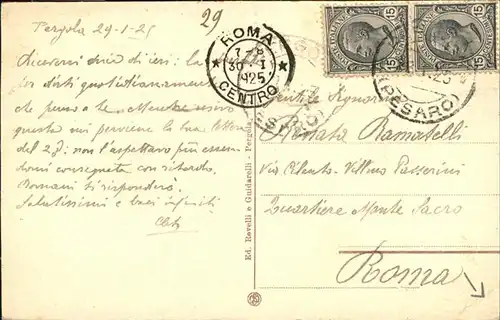 29
Pergola 29-1-25
di ieri: la
quotidianamente
che penso a te. Mentre
questa mi perviene la tua lettera
del 27: non l'aspettavo più essen-
domi consegnata con ritardo.
Domani ti risponderò.
Salutissimi e baci infiniti
Ed. Revelli e Guidarelli - Pergola
ROMA
30 - I
1925
CENTRO
POSTE ITALIANE
15
POSTE ITALIANE
15
(PESARO)
Gentile Signora
Renata Ramatelli
Via Cilento - Villino Passerini
Quartiere Monte Sacro
Roma